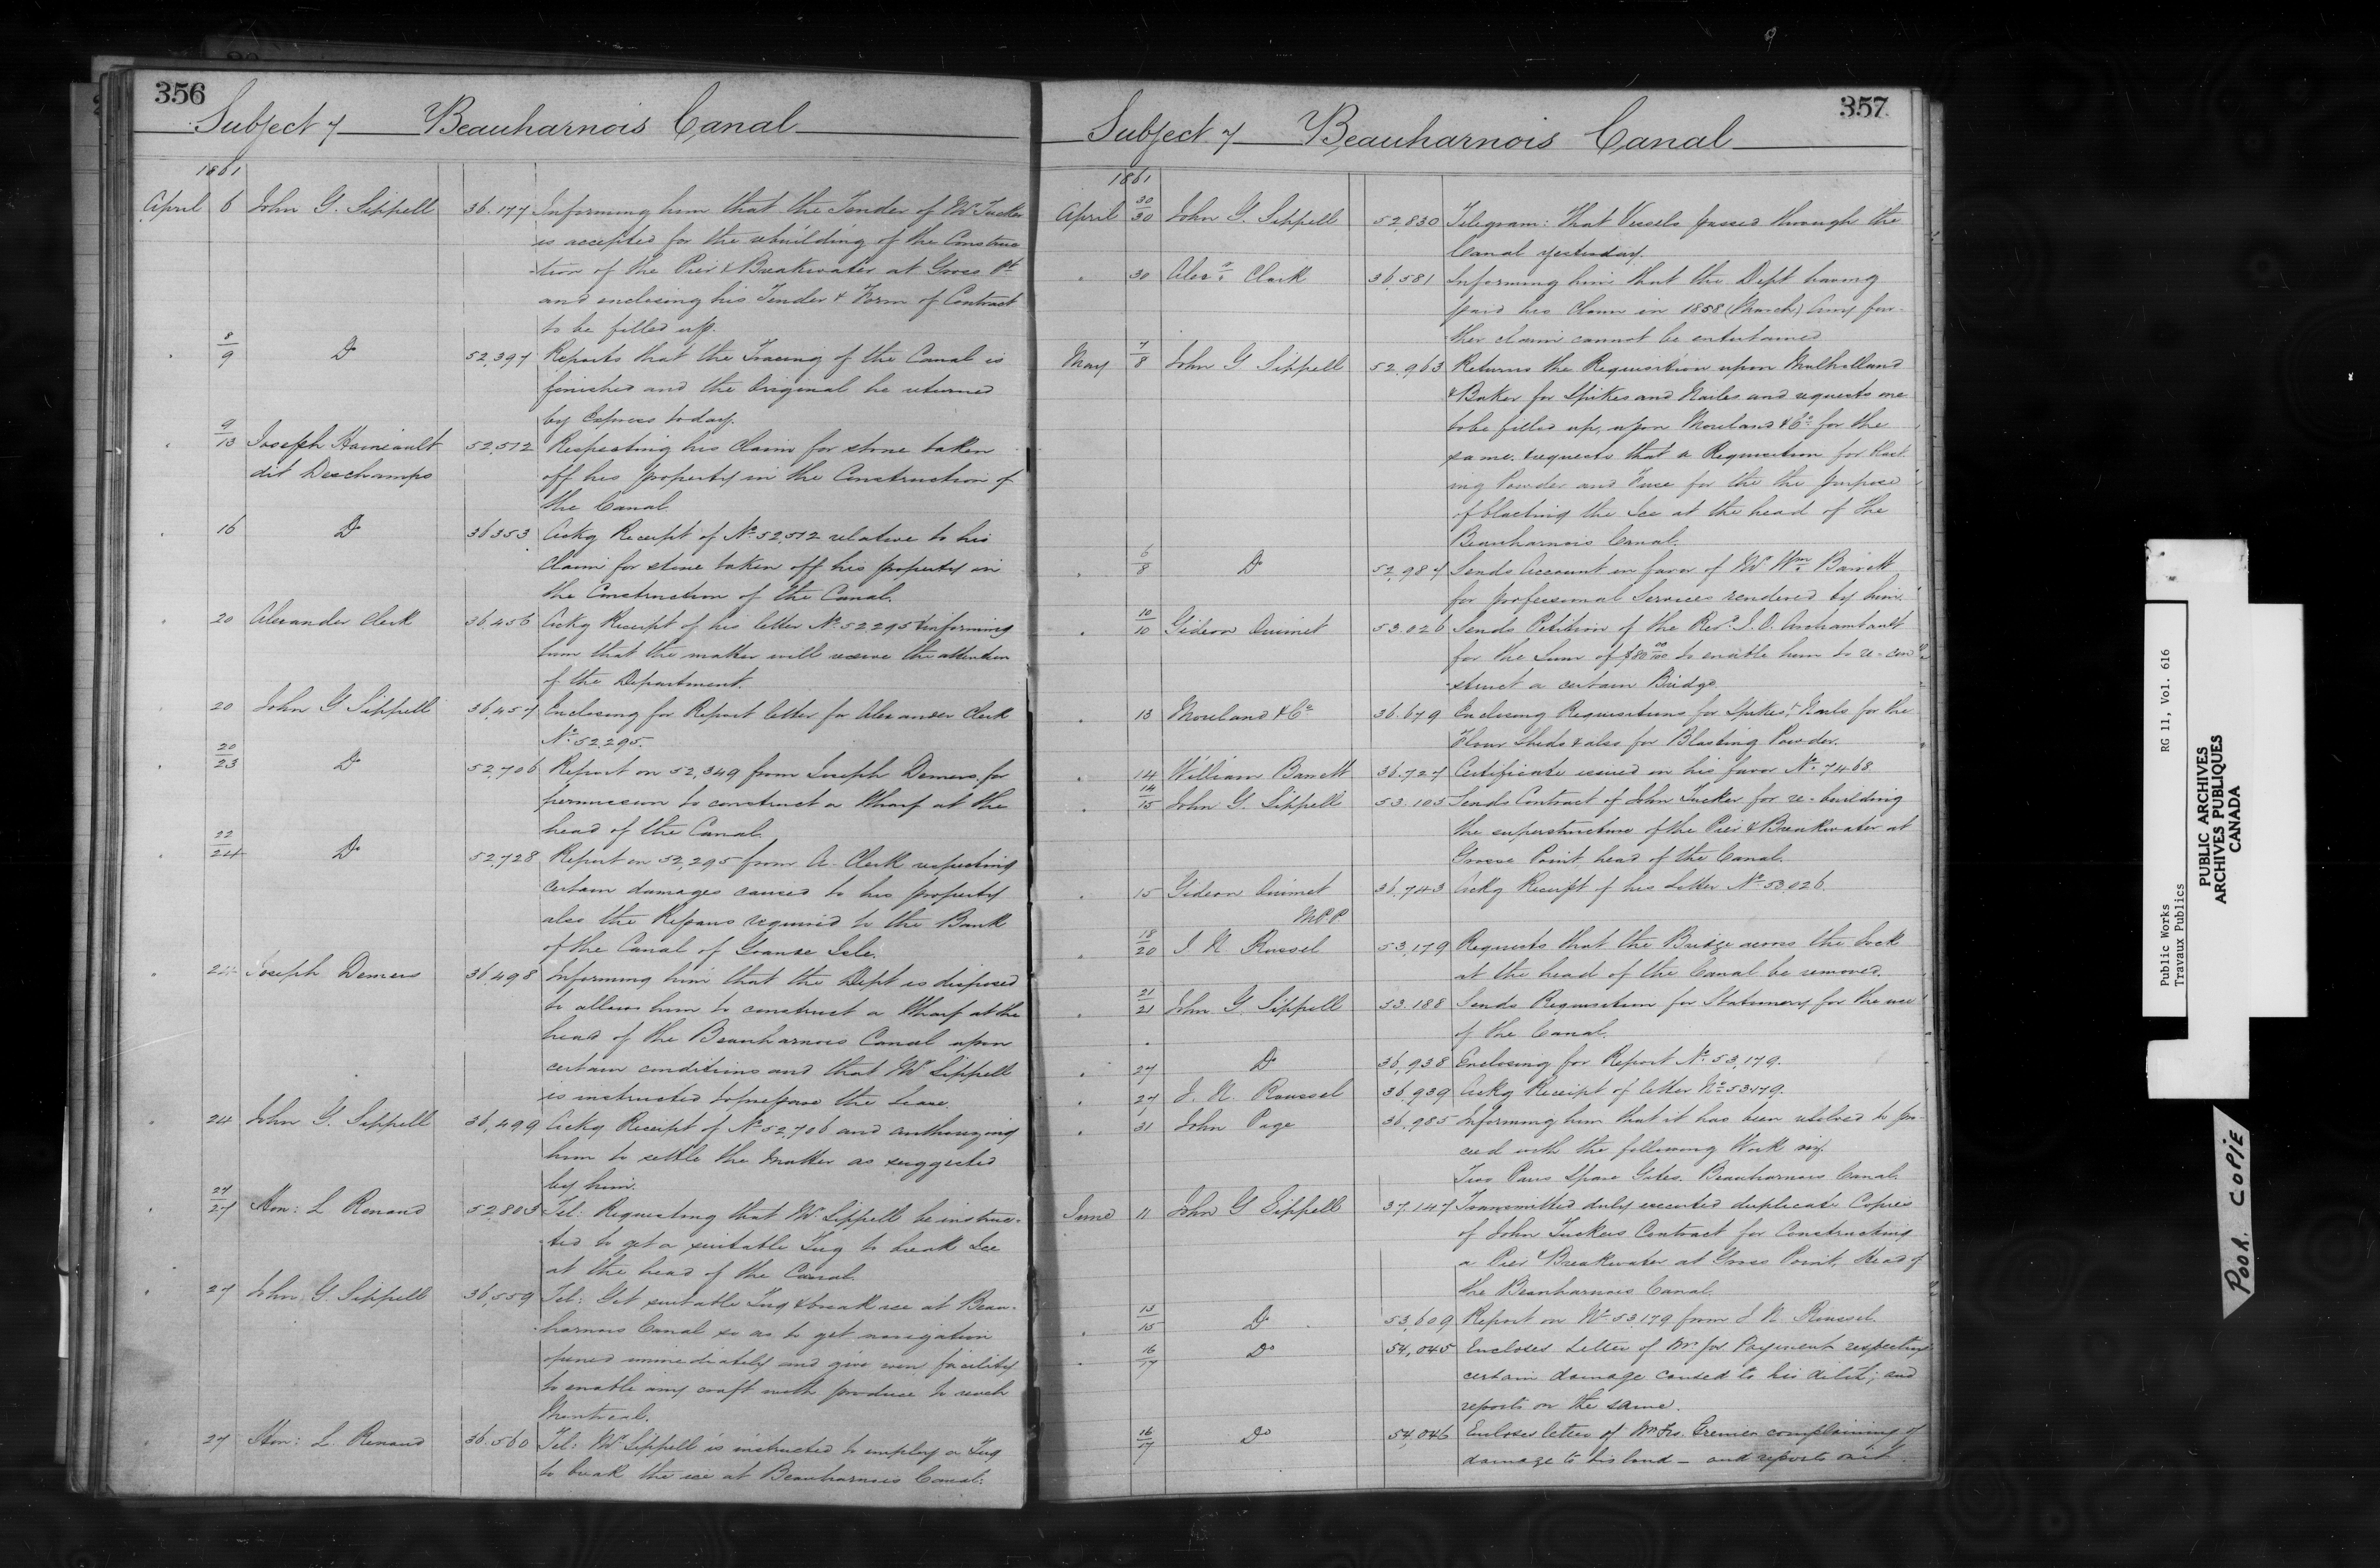 356
Subject 7 Beauharnois Canal
1861
April 6 John G. Sippell 36.177 Informing him that the Tender of Mr Tucker
is accepted for the rebuilding of the Construc
tion of the Pier & Breakwater at Gross Pt
and enclosing his Tender & Form of Contract
to be filled up.
8/9 Do 52,397 Reports that the Tracing of the Canal is
finished and the Original he returned
by Express to day.
9/13 Joseph Haineault 52,512 Respecting his Claim for stone taken
dit Deschamps off his property in the Construction of
the Canal
16 Do 36353 Ackg Receipt of No 52,512 relative to his
Claim for stone taken off his property in
the Construction of the Canal.
20 Alexander Clerk 36456 Ackg Receipt of his letter No 52295 & informing
him that the matter will receive the attention
of the Department.
20 John G Sippell 36,457 Enclosing for Report letter for Alexander Clerk
No 52.295.
20/23 Do 52,706 Report on 52,349 from Joseph Demers for
permission to construct a Wharf at the
head of the Canal.
22/24 Do 52,728 Report on 52,295 from A. Clerk respecting
certain damages caused to his property
also the Repairs required to the Bank
of the Canal of Grande Isle.
24 Joseph Demers 36,498 Informing him that the Dept is disposed
to allow him to construct a Wharf at the
head of the Beauharnois Canal upon
certain conditions and that Mr Sippell
is instructed to prepare the Lease.
24 John G. Sippell 36,499 Ackg Receipt of No 52,706 and authorizing
him to settle the Matter as suggested
by him.
27/27 Hon: L Renaud 52805 Tel: Requesting that Mr Sippell be instruc-
ted to get a suitable Tug to break Ice
at the head of the Canal.
27 John G. Sippell 36,559 Tel: Get suitable Tug & break ice at Beau-
harnois Canal so as to get navigation
opened immediately and give even facility
to enable any craft with produce to reach
Montreal.
27 Hon: L. Renaud 36.560 Tel: Mr Sippell is instructed to employ a Tug
to break the ice at Beauharnois Canal.
357
Subject 7 Beauharnois Canal
1861
April 30/30 John G. Sippell 52,830 Telegram: That Vessels passed through the
Canal yesterday.
30 Alexr Clerk 36,581 Informing him that the Dept having
paid his Claim in 1858 (March) Any fur-
ther claim cannot be entertained
May 7/8 John G Sippell 52,963 Returns the Requisition upon Mulholland
& Baker for Spikes and Nailes and requests one
to be filled up, upon Moreland & Co for the
same. & requests that a Requisition for Blast
ing Powder and Fuse for the the purpose
of blasting the Ice at the head of the
Beauharnois Canal.
6/8 Do 52,987 Sends Account in favor of Mr Wm Barrett
for professional Services rendered by him.
10/10 Gideon Ouimet 53.026 Sends Petition of the Revd Archambault
for the Sum of $80 00/100 to enable him to re-con
struct a certain Bridge
13 Moreland & Co 36.679 Enclosing Requisitions for Spikes & Nails for the
Flour Sheds & also for Blasting Powder.
14 William Barrett 36.727 Certificate issued in his favor No 7468
14/15 John G. Sippell 53.105 Sends Contract of John Tucker for re-building
the superstructure of the Pier & Breakwater at
Grosse Point, head of the Canal.
15 Gideon Ouimet 36,743 Ackg Receipt of his Letter No 53026
M.P.P.
18/20 J N Roussel 53,179 Requests that the Bridge across the Lock
at the head of the Canal be removed.
21/21 John G. Sippell 53.188 Sends Requisition for Stationery for the use
of the Canal.
27 Do 36,938 Enclosing for Report No 53,179.
27 J. N. Roussel 36.939 Ackg Receipt of letter No 53179.
31 John Page 36,985 Informing him that it has been resolved to pro-
ceed with the following Work viz
Two Pairs Spare Gates. Beauharnois Canal.
June 11 John G Sippell 37.147 Transmitted duly executed duplicate Copies
of John Tuckers Contract for Constructing
a Pier & Breakwater at Gross Point, Head of
the Beauharnois Canal.
13/15 Do 53,609 Report on No 53,179 from J N. Roussel
16/17 Do 54,045 Encloses Letter of Mr for Payment respecting
certain damage caused to his; and
reports on the same.
16/17 Do 54,046 Encloses letter of Mr Frs. complaining of
damage to his land - and reports on it
Public Works RG 11, Vol. 616
Travaux Publics
PUBLIC ARCHIVES
ARCHIVES PUBLIQUES
CANADA
POOR COPIE